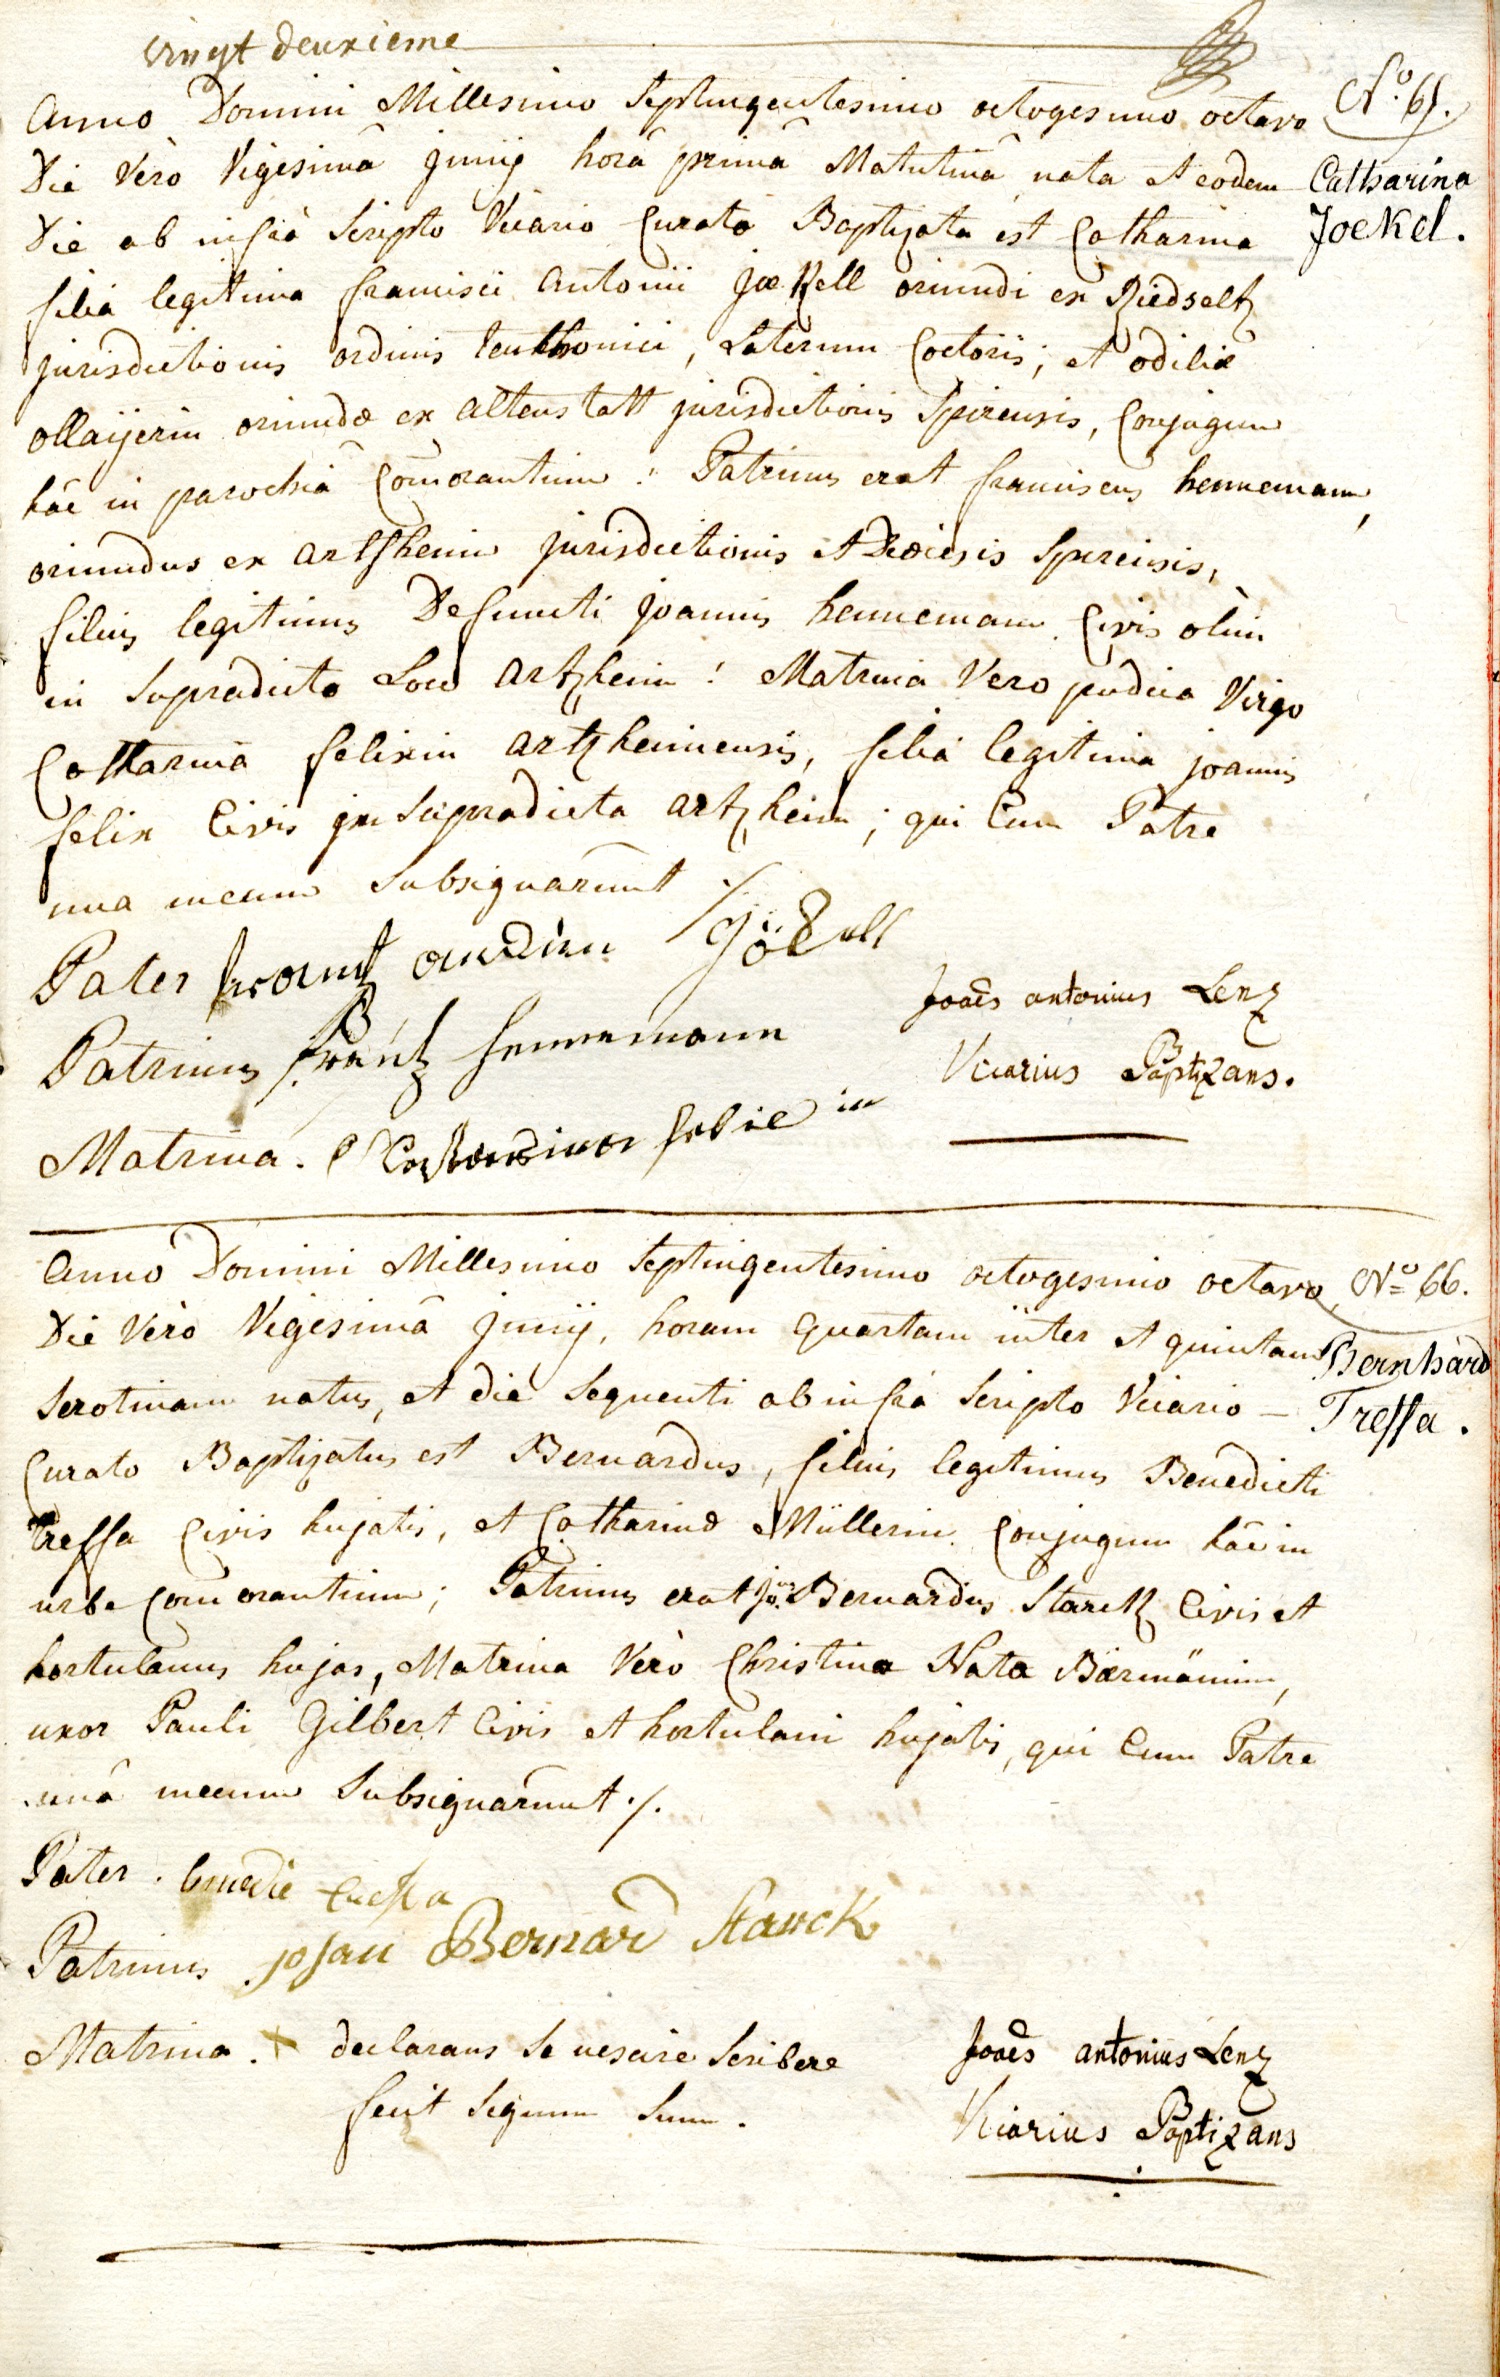 vingt deuxieme
Anno Domini Millesimo Septingentesimo octogesimo octavo
Nº 65.
Die Verò Vigesimâ Junij horâ primâ Matutinâ nata et eodem
Catharina
Die ab infrà Scripto Vicario Curato Baptizata est Catharina
Joekel.
filia legitima francisci Antonii joekell oriundi ex Riedseltz
jurisdictionis ordinis teuthonici, Laterum Coctoris; et odiliæ
ollaijerin oriundæ ex altenstatt jurisdictionis Spirensis, Conjugum
hâc in parochiâ Com̄orantium: Patrinus erat franciscus hennemann,
oriundus ex artzheim jurisdictionis et Diœcesis Spirensis,
filius legitimus Defuncti joannis hennemann Civis olim
in Supradicto Loco artzheim: Matrina Vero pudica Virgo
Catharina felixin artzheimensis, filia legitima joannis
felix Civis in Supradicta artzheim; qui Cum Patre
una mecum Subsignarunt ./.
Pater frantz andon Jöckell
Patrinus frantz hennemann
Joaēs antonius Lenz
Vicarius Baptizans.
Matrina. Catharina felixin
Anno Domini Millesimo Septingentesimo octogesimo octavo,
Nº 66.
Die Verò Vigesimâ Junij, horam quartam inter et quintam
Bernhard
Serotinam natus, et die Sequenti ab infrà Scripto Vicario –
Treffa.
Curato Baptizatus est Bernardus, filius legitimus Benedicti
treffa Civis hujatis, et Catharinæ Müllerin Conjugum hâc in
urbe Com̄orantium; Patrinus erat joēs Bernardus Starck Civis et
hortulanus hujas, Matrina Verò Christina Nata Bärmännin,
uxor Pauli Gilbert Civis et hortulani hujatis, qui Cum Patre
unâ mecum Subsignarunt ./.
Pater. benedic treffa
Patrinus johan Bernard Starck
Matrina. + declarans Se nescire Scribere
fecit Signum Suum.
Joaēs antonius Lenz
Vicarius Baptizans